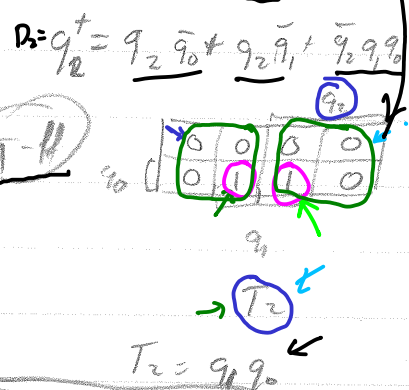 D₂= q₂⁺ = q₂ q̄₀ + q₂ q̄₁ + q̄₂ q₁ q₀
q₂
0 0 0 0
q₀ 0 1 1 0
q₁
T₂
T₂ = q₁ q₀